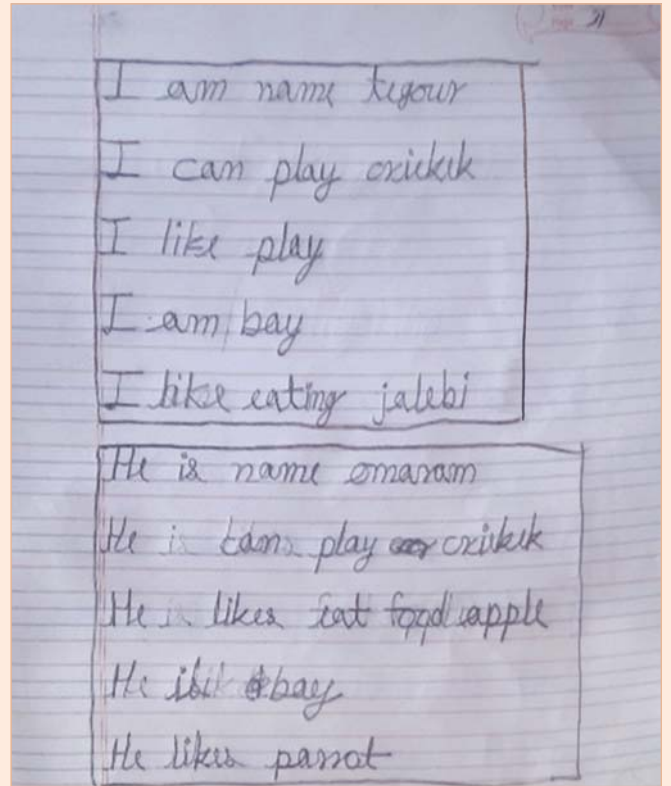 I am name tegour
I can play crickik
I like play
I am bay
I like eating jalebi
He is name omaram
He is can play crickik
He is likes eat food apple
He is bay
He likes parrot